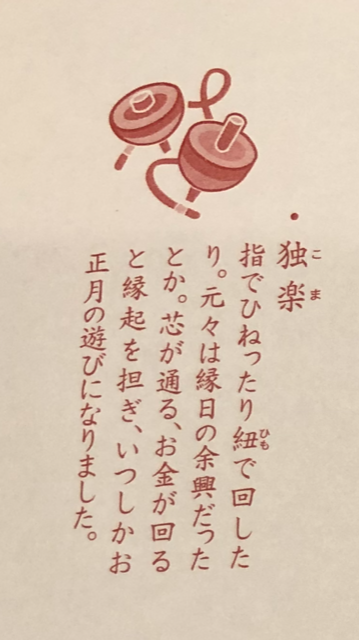 ・独楽
指でひねったり紐で回した
り。元々は縁日の余興だった
とか。芯が通る、お金が回る
と縁起を担ぎ、いつしかお
正月の遊びになりました。
こま
ひも